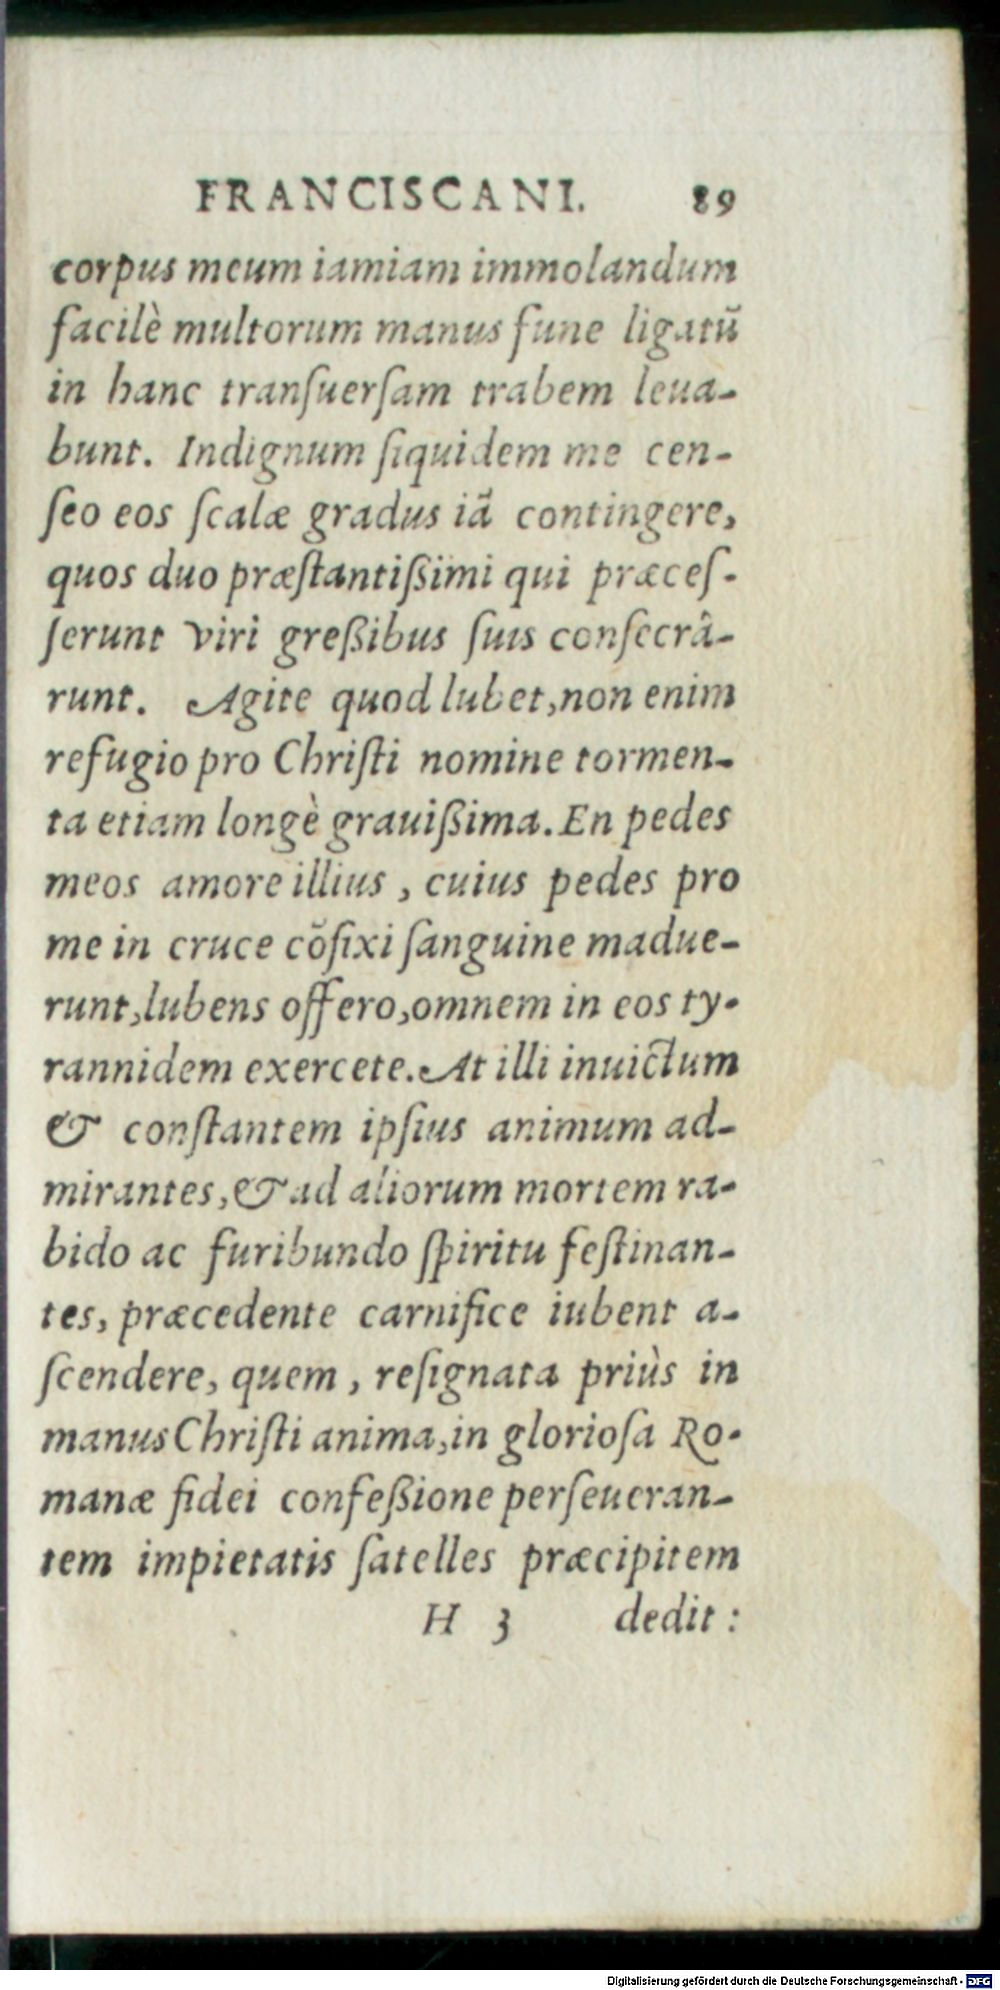 FRANCISCANI. 89
corpus meum iamiam immolandum
facilè multorum manus fune ligatũ
in hanc tranſuerſam trabem leua-
bunt. Indignum ſiquidem me cen-
ſeo eos ſcalæ gradus iã contingere,
quos duo præſtantißimi qui præceſ-
ſerunt viri greßibus ſuis conſecrâ-
runt. Agite quod lubet, non enim
refugio pro Chriſti nomine tormen-
ta etiam longè grauißima. En pedes
meos amore illius, cuius pedes pro
me in cruce cõfixi ſanguine madue-
runt, lubens offero, omnem in eos ty-
rannidem exercete. At illi inuictum
& conſtantem ipſius animum ad-
mirantes, & ad aliorum mortem ra-
bido ac furibundo ſpiritu feſtinan-
tes, præcedente carnifice iubent a-
ſcendere, quem, reſignata priùs in
manus Chriſti anima, in glorioſa Ro-
manæ fidei confeßione perſeueran-
tem impietatis ſatelles præcipitem
H 3 dedit:
Digitalisierung gefördert durch die Deutsche Forschungsgemeinschaft - DFG